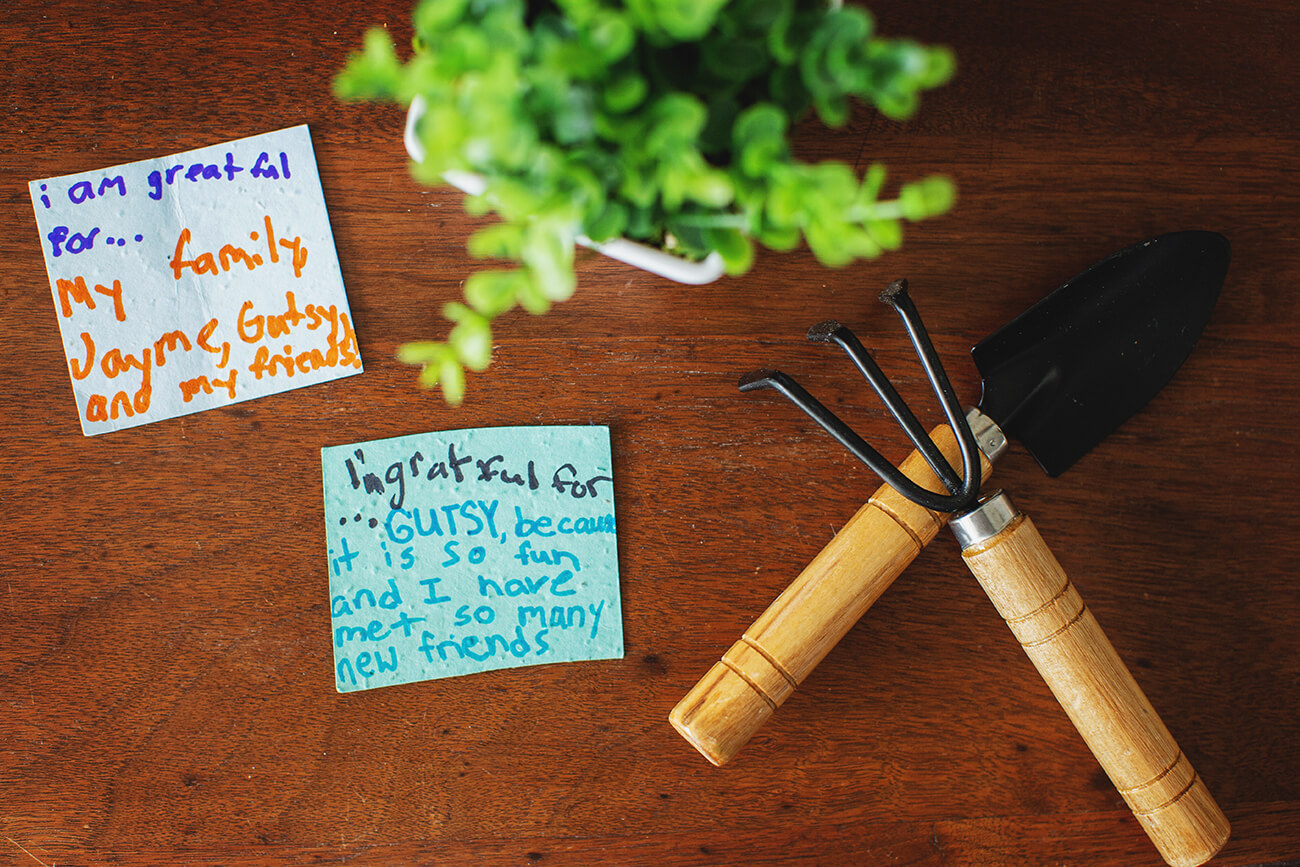 i am greatful
for...
My family,
Jayme, Gutsy,
and my friends!
I'm gratful for
...GUTSY, because
it is so fun
and I have
met so many
new friends